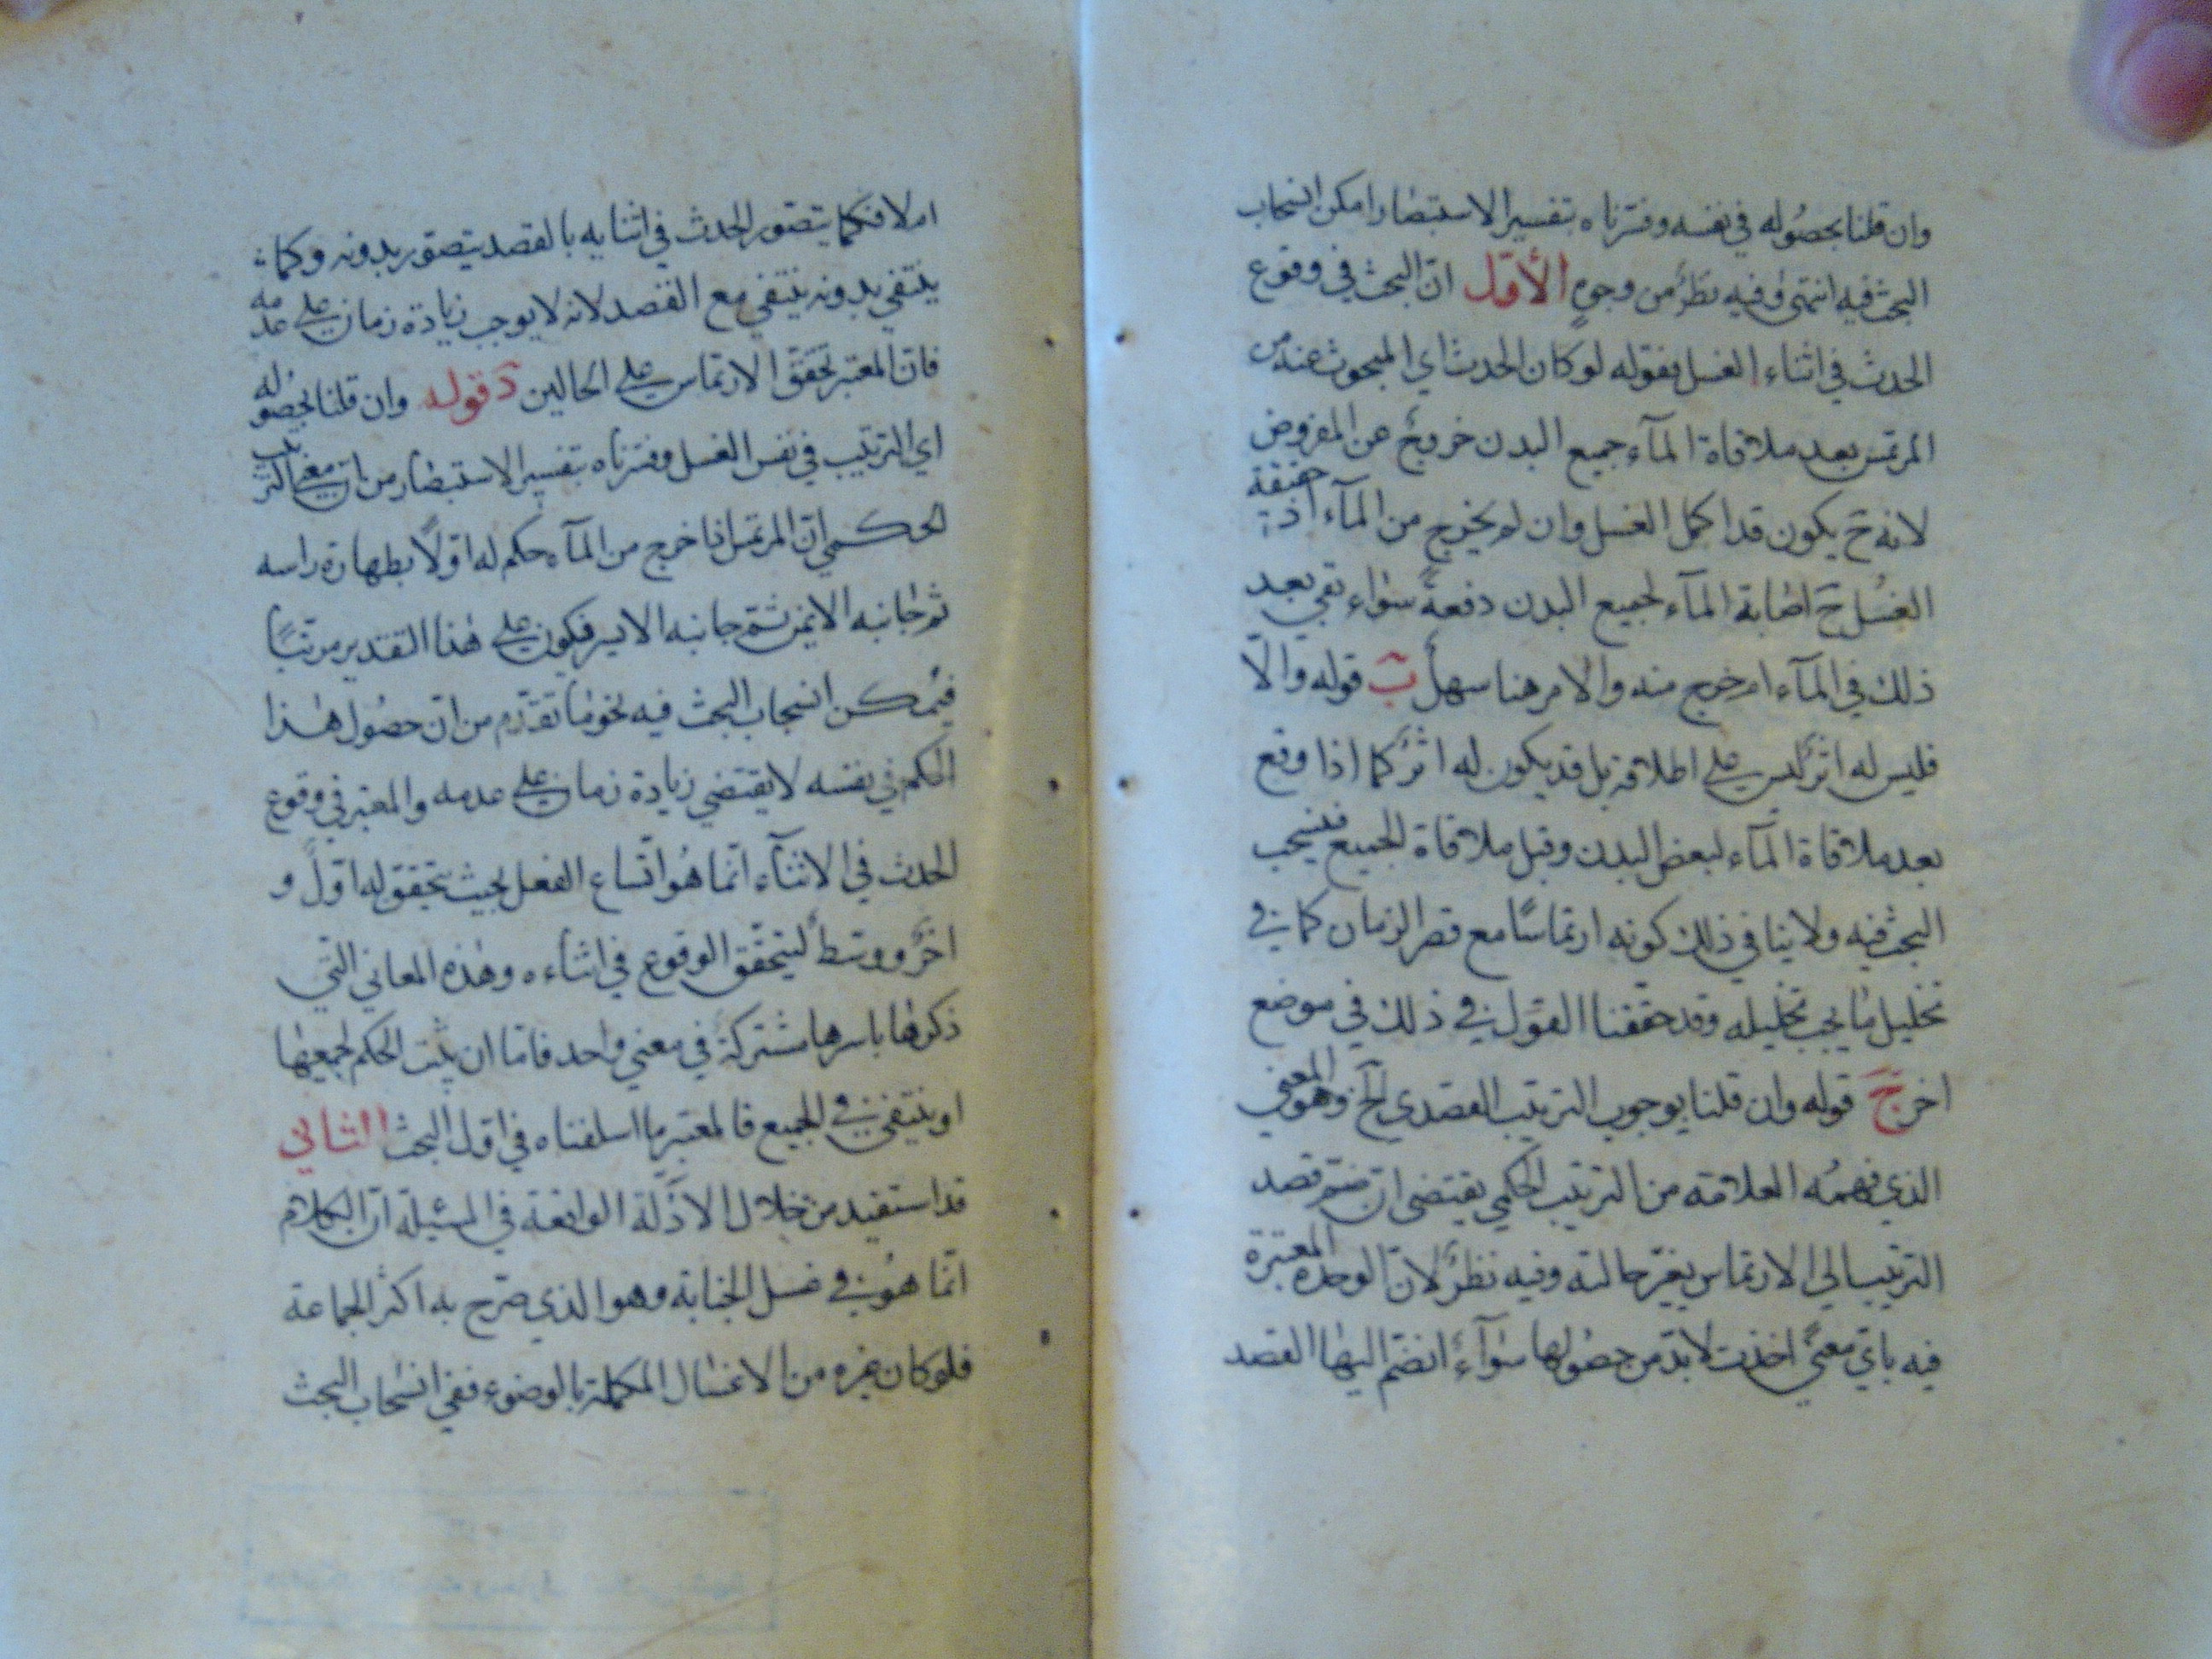 وان قلنا بحصُوله في نفسه وفسّرناه بتفسير الاستبصار امكن انسحاب
البحث فيه انتهى وفيه نظرٌ من وجوهٍ الأوّل انّ البحث في وقوع
الحدث في اثناء الغسل فقوله لو كان الحدث اي المبحوث عنه من
المرتمس بعد ملاقاة المآء جميع البدن خروجٌ عن المفروض
لانه ح يكون قد اكمل الغسل وان لم يخرج من المآء اذ حقيقة
الغسُل ح اصابة المآء لجميع البدن دفعةً سوٰاء بقي بعد
ذلك في المآء ام خرج منه والامر هنا سهلٌ ب قوله والّا
فليس له اثرٌ ليس على اطلاقه بل قد يكون له اثرٌ كما اذا وقع
بعد ملاقاة المآء لبعض البدن وقبل ملاقاة الجميع فينسحب
البحث فيه ولا ينافي ذلك كونه ارتماسًا مع قصر الزمان كما في
تخليل ما يجب تخليله وقد حققنا القول في ذلك في موضع
اخر ج قوله وان قلنا بوجوب الترتيب القصدي الخ وهو المعنى
الذي فهمُه العلامة من الترتيب الحكمي يقتضي انّ ضم قصد
الترتيب الي الارتماس يغيّر حالته وفيه نظرٌ لانّ الوحدة المعتبرة
فيه بايّ معنًي اخذت لا بدّ من حصُولها سوٰآءٌ انضمّ اليها القصد
ام لا فكما يتصّور الحدث في اثنايه بالقصد يتصّور بدونه وكما
ينتفي بدونه ينتفي مع القصد لانه لا يوجب زيادة زمان على عدمه
فانّ المعتبر تحقّق الارتماس على الحالين د قوله وان قلنا بحصُوله
اي الترتيب في نفس الغسل وفسّرناه بتفسير الاستبصار من انّ معنى الترتيب
الحكمي انّ المرتمس اذا خرج من المآء حكم له اوّلًا بطهارة راسه
ثم جانبه الايمن ثمّ جانبه الايسر فيكون على هذا التقدير مرتّبًا
فيُمكن انسحاب البحث فيه نحو ما تقدّم من انّ حصُول هذا
الحكم في نفسه لا يقتضي زيادة زمان على عدمه والمعتبر في وقوع
الحدث في الاثنآء انّما هُو اتّساع الفعل بحيث يتحقق له اوّلٌ و
اخرٌ ووسطٌ ليتحقّق الوقوع في اثناءه وهذه المعاني التي
ذكرها باسرها مشتركةٌ في معني واحد فامّا ان يثبت الحكم لجميعها
او ينتفي في الجميع فالمعتبر ما اسلفناه في اوّل البحث الثاني
قد استفيد من خلال الادّلة الواقعة في المسئيلة انّ الكلام
انّما هُو في غسل الجنابة وهو الذي صرّح به اكثر الجماعة
فلو كان غيره من الاغسٰال المكملة بالوضوء ففي انسحٰاب البحث